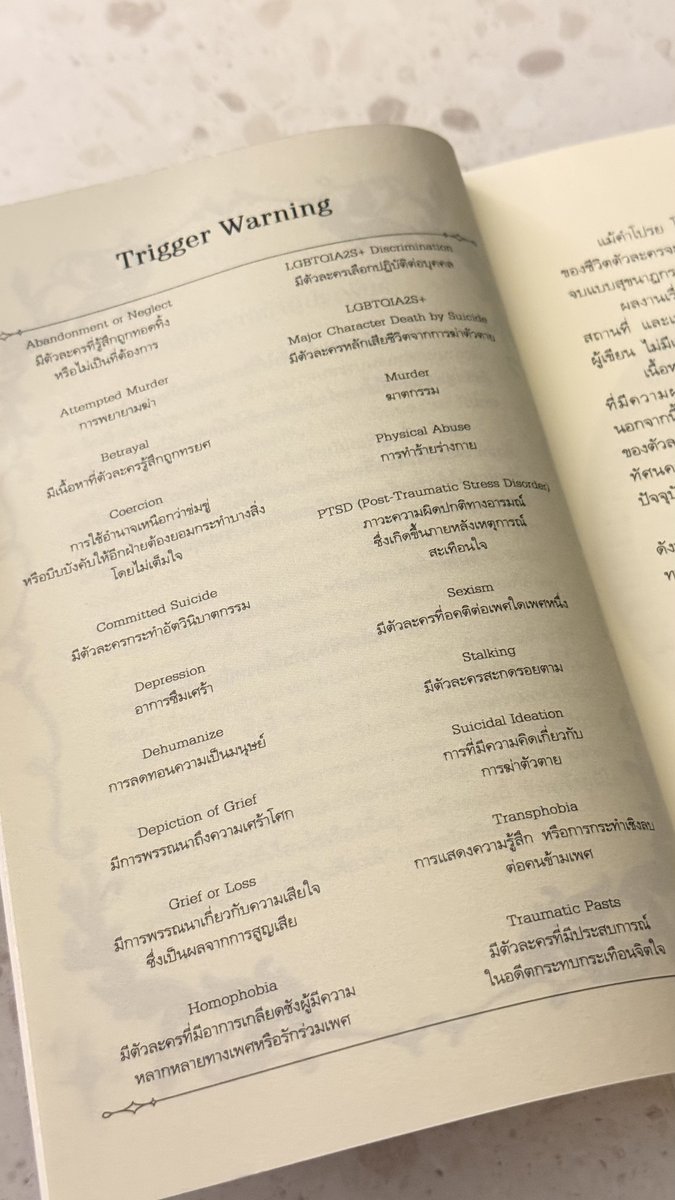 Trigger Warning
Abandonment or Neglect
มีตัวละครที่รู้สึกถูกทอดทิ้ง
หรือไม่เป็นที่ต้องการ
Attempted Murder
การพยายามฆ่า
Betrayal
มีเนื้อหาที่ตัวละครรู้สึกถูกทรยศ
Coercion
การใช้อำนาจเหนือกว่าข่มขู่
หรือบีบบังคับให้อีกฝ่ายต้องยอมกระทำบางสิ่ง
โดยไม่เต็มใจ
Committed Suicide
มีตัวละครกระทำอัตวินิบาตกรรม
Depression
อาการซึมเศร้า
Dehumanize
การลดทอนความเป็นมนุษย์
Depiction of Grief
มีการพรรณนาถึงความเศร้าโศก
Grief or Loss
มีการพรรณนาเกี่ยวกับความเสียใจ
ซึ่งเป็นผลจากการสูญเสีย
Homophobia
มีตัวละครที่มีอาการเกลียดชังผู้มีความ
หลากหลายทางเพศหรือรักร่วมเพศ
LGBTQIA2S+ Discrimination
มีตัวละครเลือกปฏิบัติต่อบุคคล
LGBTQIA2S+
Major Character Death by Suicide
มีตัวละครหลักเสียชีวิตจากการฆ่าตัวตาย
Murder
ฆาตกรรม
Physical Abuse
การทำร้ายร่างกาย
PTSD (Post-Traumatic Stress Disorder)
ภาวะความผิดปกติทางอารมณ์
ซึ่งเกิดขึ้นภายหลังเหตุการณ์
สะเทือนใจ
Sexism
มีตัวละครที่อคติต่อเพศใดเพศหนึ่ง
Stalking
มีตัวละครสะกดรอยตาม
Suicidal Ideation
การที่มีความคิดเกี่ยวกับ
การฆ่าตัวตาย
Transphobia
การแสดงความรู้สึก หรือการกระทำเชิงลบ
ต่อคนข้ามเพศ
Traumatic Pasts
มีตัวละครที่มีประสบการณ์
ในอดีตกระทบกระเทือนจิตใจ
แม้คำโปรย
ของชีวิตตัวละคร
จบแบบสุขนาฏกร
ผลงานเรื่
สถานที่ และ
ผู้เขียน ไม่มี
เนื้อห
ที่มีความ
นอกจากนี้
ของตัวล
ทัศนค
ปัจจุบั
ดัง